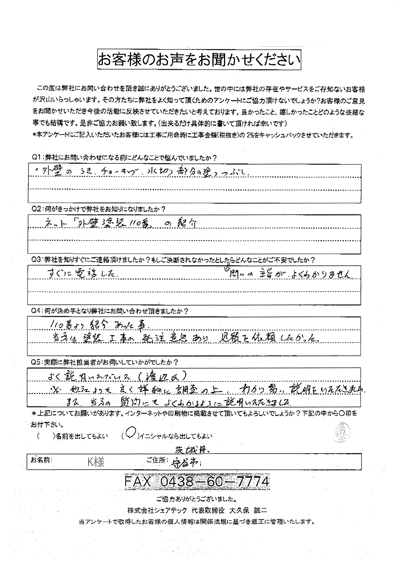 お客様のお声をお聞かせください
この度は弊社にお問い合わせを頂き誠にありがとうございます。世の中には弊社の存在やサービスをご存知ないお客様
が沢山いらっしゃいます。その方たちに弊社をよく知って頂くためのアンケートにご協力頂けないでしょうか?お客様のご意見
をお聞かせいただき今後の活動に反映させていただきたいと考えております。良かったこと、嬉しかったことなどの些細な
事でも結構です。是非ご協力お願い致します。(出来るだけ具体的に書いて頂ければ幸いです)
*本アンケートにご記入いただいたお客様には工事ご用命時に工事金額(税抜き)の2%をキャッシュバックさせていただきます。
Q1:弊社にお問い合わせになる前にどんなことで悩んでいましたか?
・外壁の チョーキング、水切り部分の塗りつぶし。
Q2:何がきっかけで弊社をお知りになりましたか?
ネット「外壁塗装110番」の紹介
Q3:弊社を知りすぐにご連絡頂けましたか?もしご決断されなかったとしたらどんなことがご不安でしたか?
すぐに電話した。 問いの主旨がよくわかりません
Q4:何が決め手となり弊社にお問い合わせ頂きましたか?
110番より紹介あった事。
当方は塗装工事の 見積を依頼したかった。
Q5:実際に弊社担当者がお伺いしていかがでしたか?
よく説明いただいた(渡辺氏)
※ 他社よりも良く詳細に調査の上、わかり易い説明をいただきました
また、当方の質問にもよくわかるように説明いただきました。
*上記についてお願いがあります。インターネットや印刷物に掲載させて頂いてもよろしいでしょうか?下記の中から〇印を
お付け下さい。
( )名前を出してもよい (〇)イニシャルなら出してもよい
茨城県、
お名前: K様 ご住所: 守谷市
FAX 0438-60-7774
ご協力ありがとうございました。
株式会社シェアテック 代表取締役 大久保 誠二
当アンケートで取得したお客様の個人情報は関係法規に基づき厳正に管理いたします。